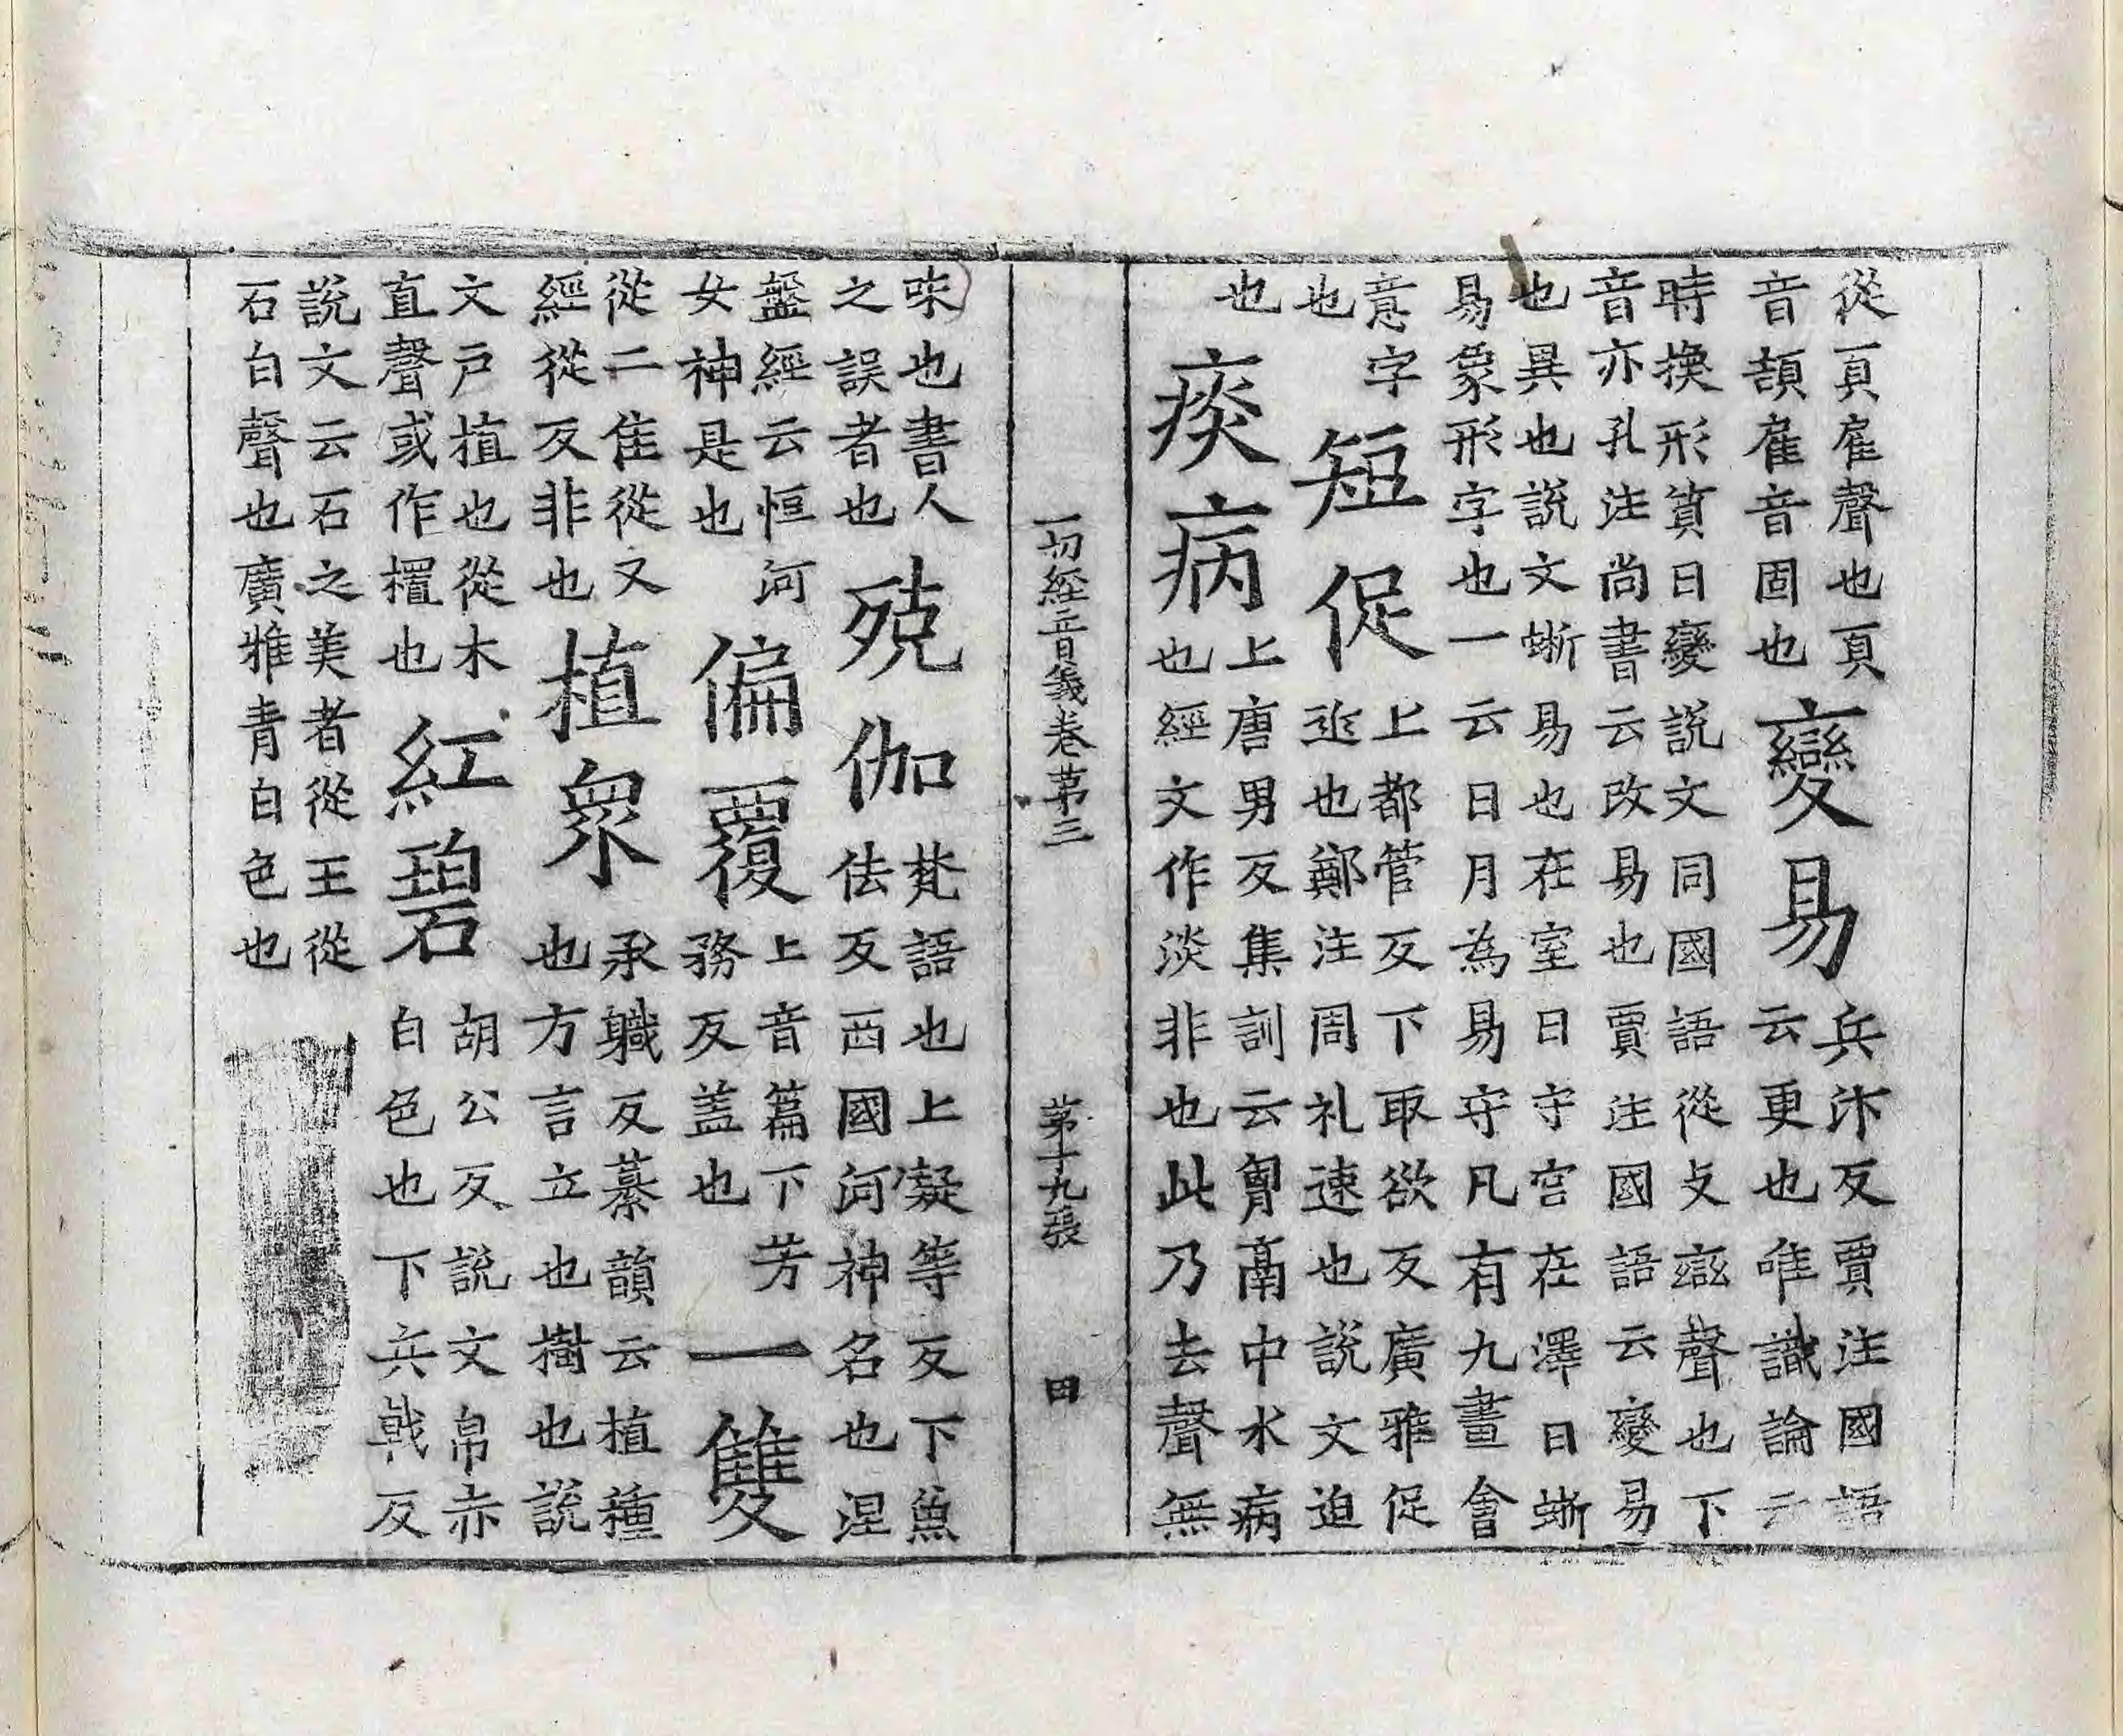 從頁雇聲也頁
音頡雇音固也
變易
兵汴反賈注國語
云更也唯識論云
時換形質曰變說文同國語從攴䜌聲也下
音亦孔注尚書云改易也賈注國語云變易
也異也說文蜥易也在室曰守宮在澤曰蜥
易象形字也一云日月為易守凡有九畫會
意字
也
短促
上都管反下取欲反廣雅促
迩也鄭注周礼速也說文迫
也
痰病
上唐男反集訓云胷鬲中水病
也經文作淡非也此乃去聲無
一切經音義卷第三 第十九張 田
味也書人
之誤者也
殑伽
梵語也上凝等反下魚
佉反西國河神名也涅
盤經云恒河
女神是也
偏覆
上音篇下芳
務反蓋也
一雙
從二隹從又
經從反非也
植眾
承職反纂韻云植種
也方言立也樹也說
文戶植也從木
直聲或作㯰也
紅碧
胡公反說文帛赤
白色也下兵戟反
說文云石之美者從王從
石白聲也廣雅青白色也